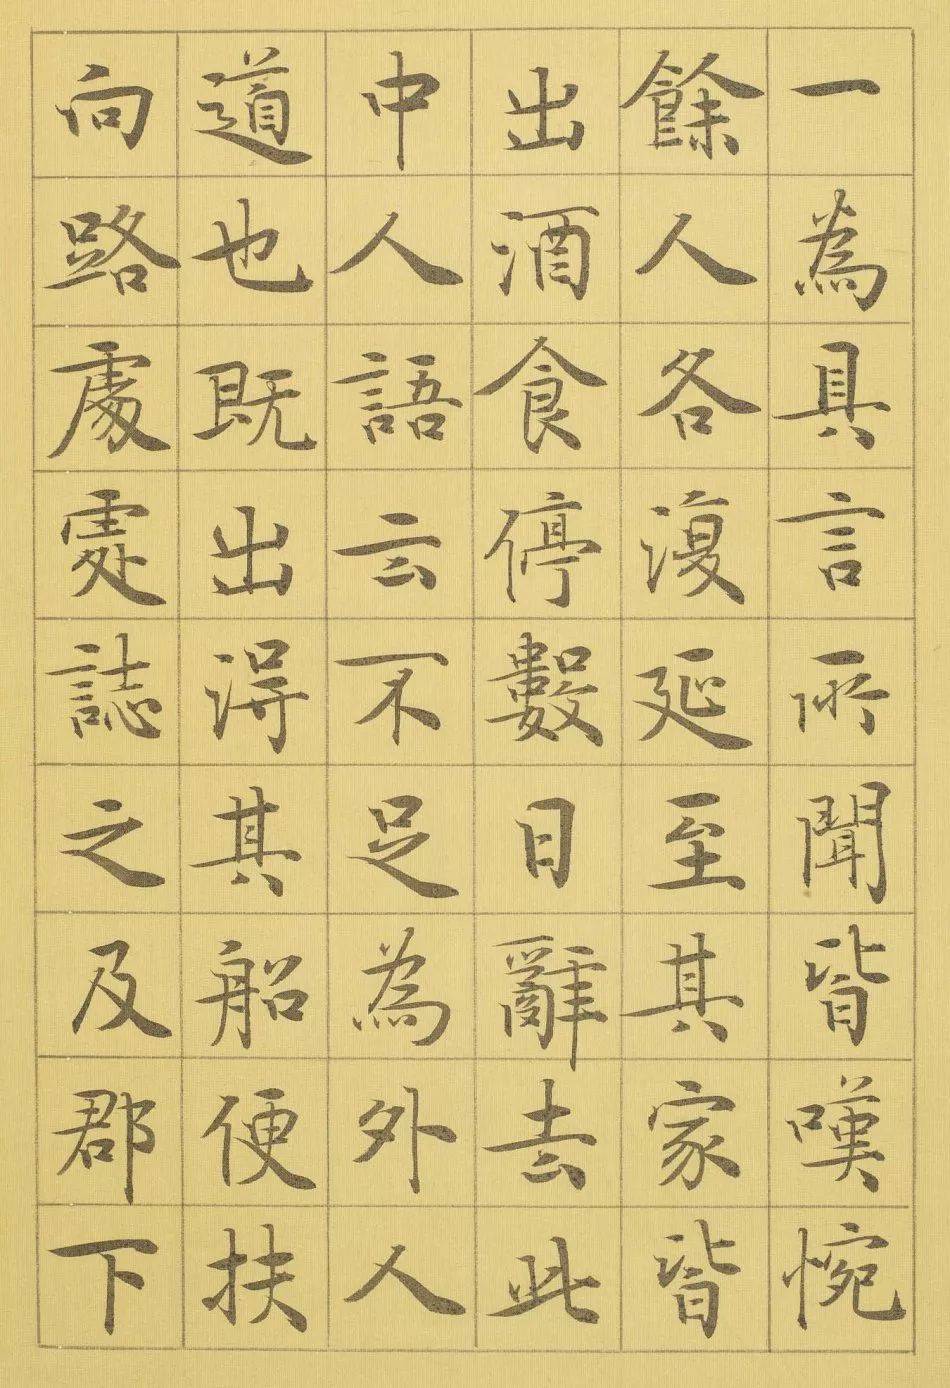 一為具言所聞皆嘆惋
餘人各復延至其家皆
出酒食停數日辭去此
中人語云不足為外人
道也既出得其船便扶
向路處處誌之及郡下